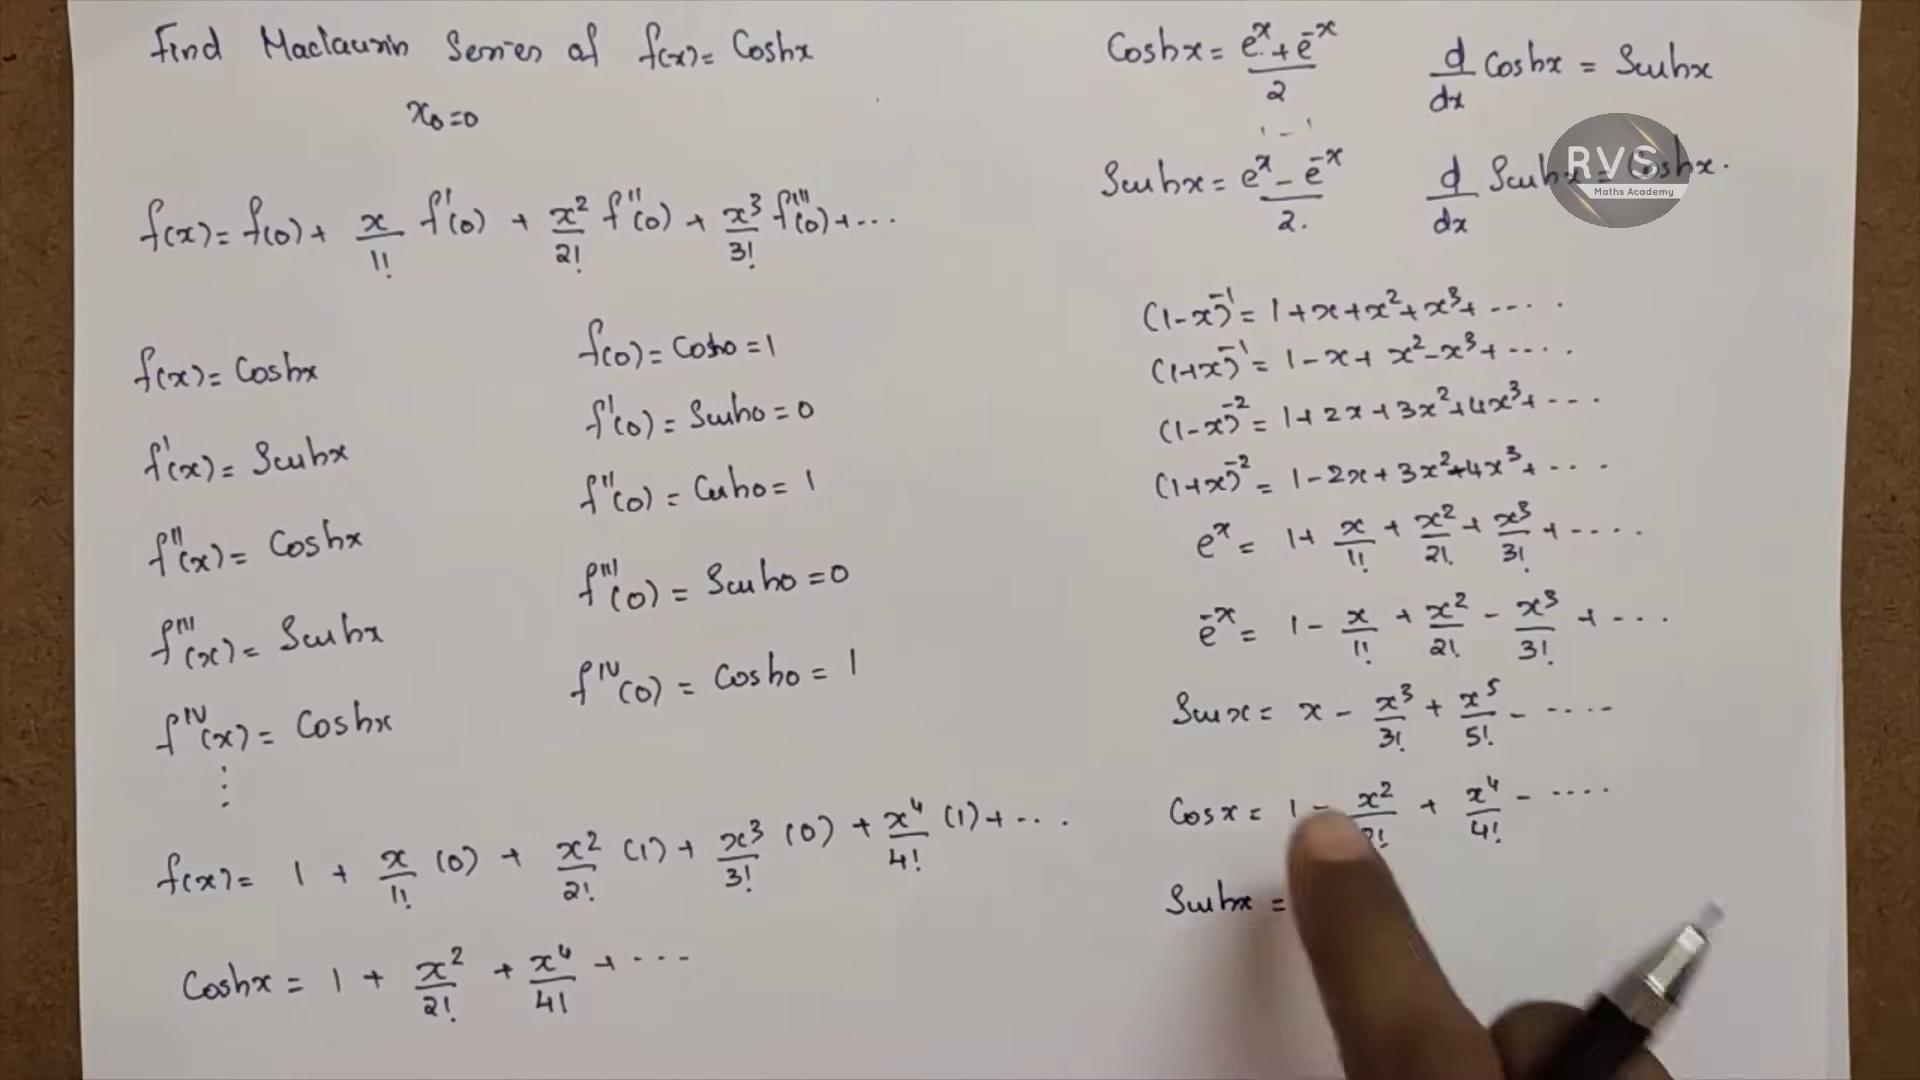 Find Maclaurin Series of f(x) = Coshx
x₀ = 0
f(x) = f(0) + x/1! f'(0) + x²/2! f''(0) + x³/3! f'''(0) + ...
f(x) = Coshx
f(0) = Cosh0 = 1
f'(x) = Sinhx
f'(0) = Sinh0 = 0
f''(x) = Coshx
f''(0) = Cosh0 = 1
f'''(x) = Sinhx
f'''(0) = Sinh0 = 0
fᴵⱽ(x) = Coshx
fᴵⱽ(0) = Cosh0 = 1
⋮
f(x) = 1 + x/1! (0) + x²/2! (1) + x³/3! (0) + x⁴/4! (1) + ...
Coshx = 1 + x²/2! + x⁴/4! + ...
Coshx = (eˣ + e⁻ˣ)/2
d/dx Coshx = Sinhx
1 - 1
Sinhx = (eˣ - e⁻ˣ)/2.
d/dx Sinhx = Coshx.
RVS
Maths Academy
(1-x)⁻¹ = 1 + x + x² + x³ + .... .
(1+x)⁻¹ = 1 - x + x² - x³ + .... .
(1-x)⁻² = 1 + 2x + 3x² + 4x³ + ...
(1+x)⁻² = 1 - 2x + 3x² - 4x³ + ....
eˣ = 1 + x/1! + x²/2! + x³/3! + ....
e⁻ˣ = 1 - x/1! + x²/2! - x³/3! + ....
Sinx = x - x³/3! + x⁵/5! - .....
Cosx = 1 - x²/2! + x⁴/4! - .....
Sinhx =